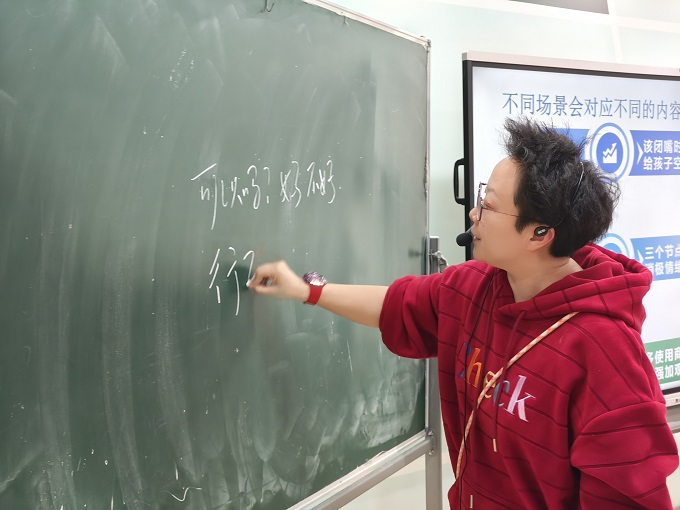 可以吗？好不好
行
不同场景会对应不同的内容
该闭嘴时
给孩子空
三个节点
极情绪
使用高
强加难
check